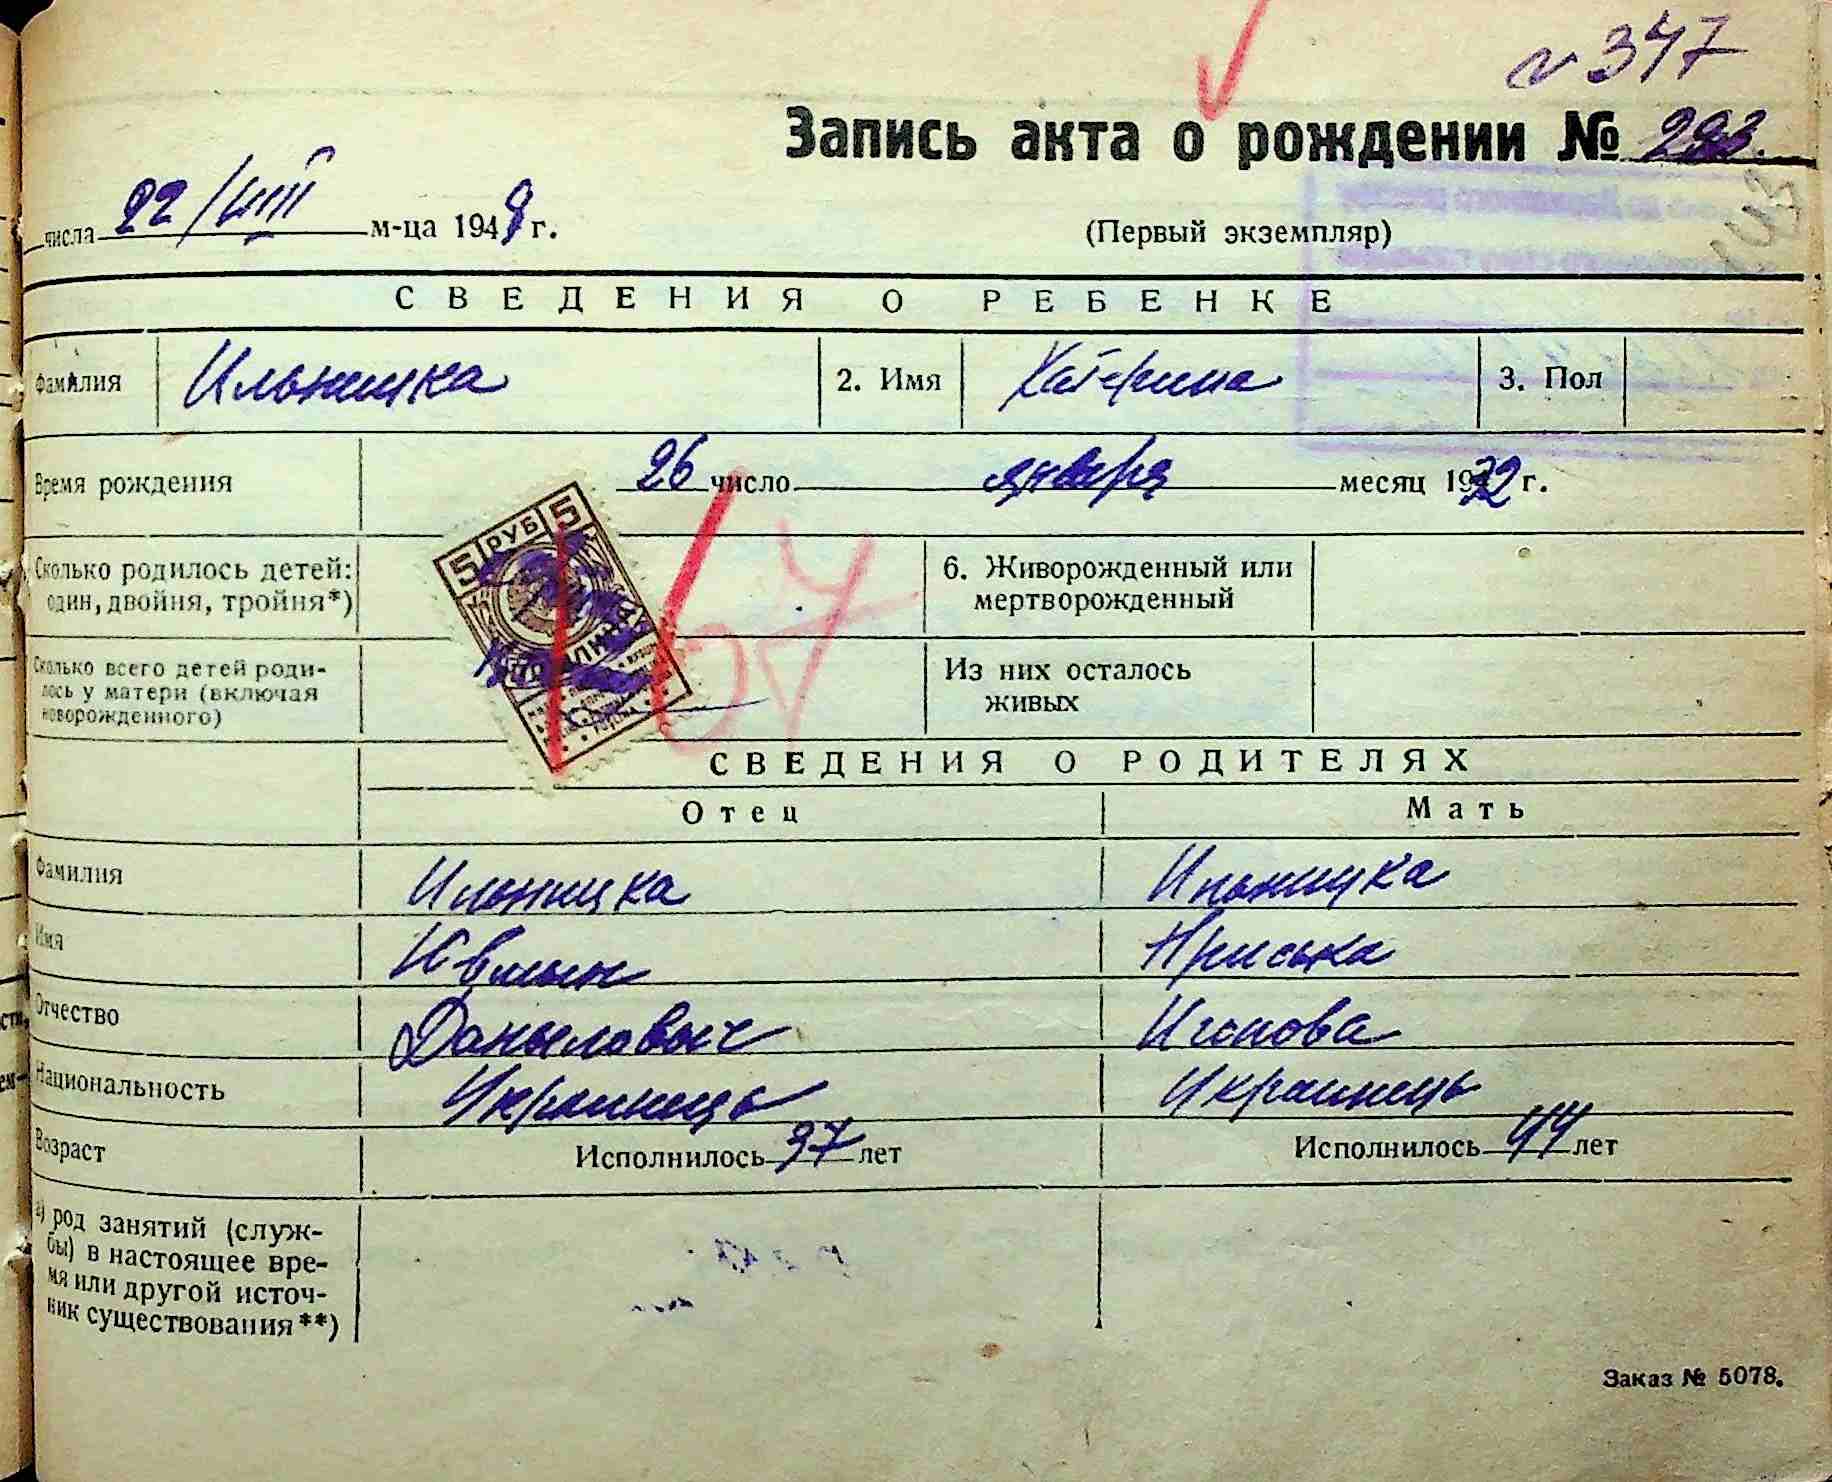 № 347
Запись акта о рождении № 293.
числа 22/VIII м-ца 1949 г.
(Первый экземпляр)
СВЕДЕНИЯ О РЕБЕНКЕ
Фамилия Ильницка 2. Имя Катерина 3. Пол
Время рождения 26 число января месяц 1932 г.
Сколько родилось детей: один, двойня, тройня*)
6. Живорожденный или мертворожденный
5 РУБ 5
167
Сколько всего детей родилось у матери (включая новорожденного)
Из них осталось живых
СВЕДЕНИЯ О РОДИТЕЛЯХ
Отец Мать
Фамилия Ильницка Ильницка
Имя Приська
Отчество Данылавыч
Национальность Украинець Украинець
Возраст Исполнилось 37 лет Исполнилось 44 лет
а) род занятий (служ-
бы) в настоящее вре-
мя или другой источ-
ник существования**)
Заказ № 5078.